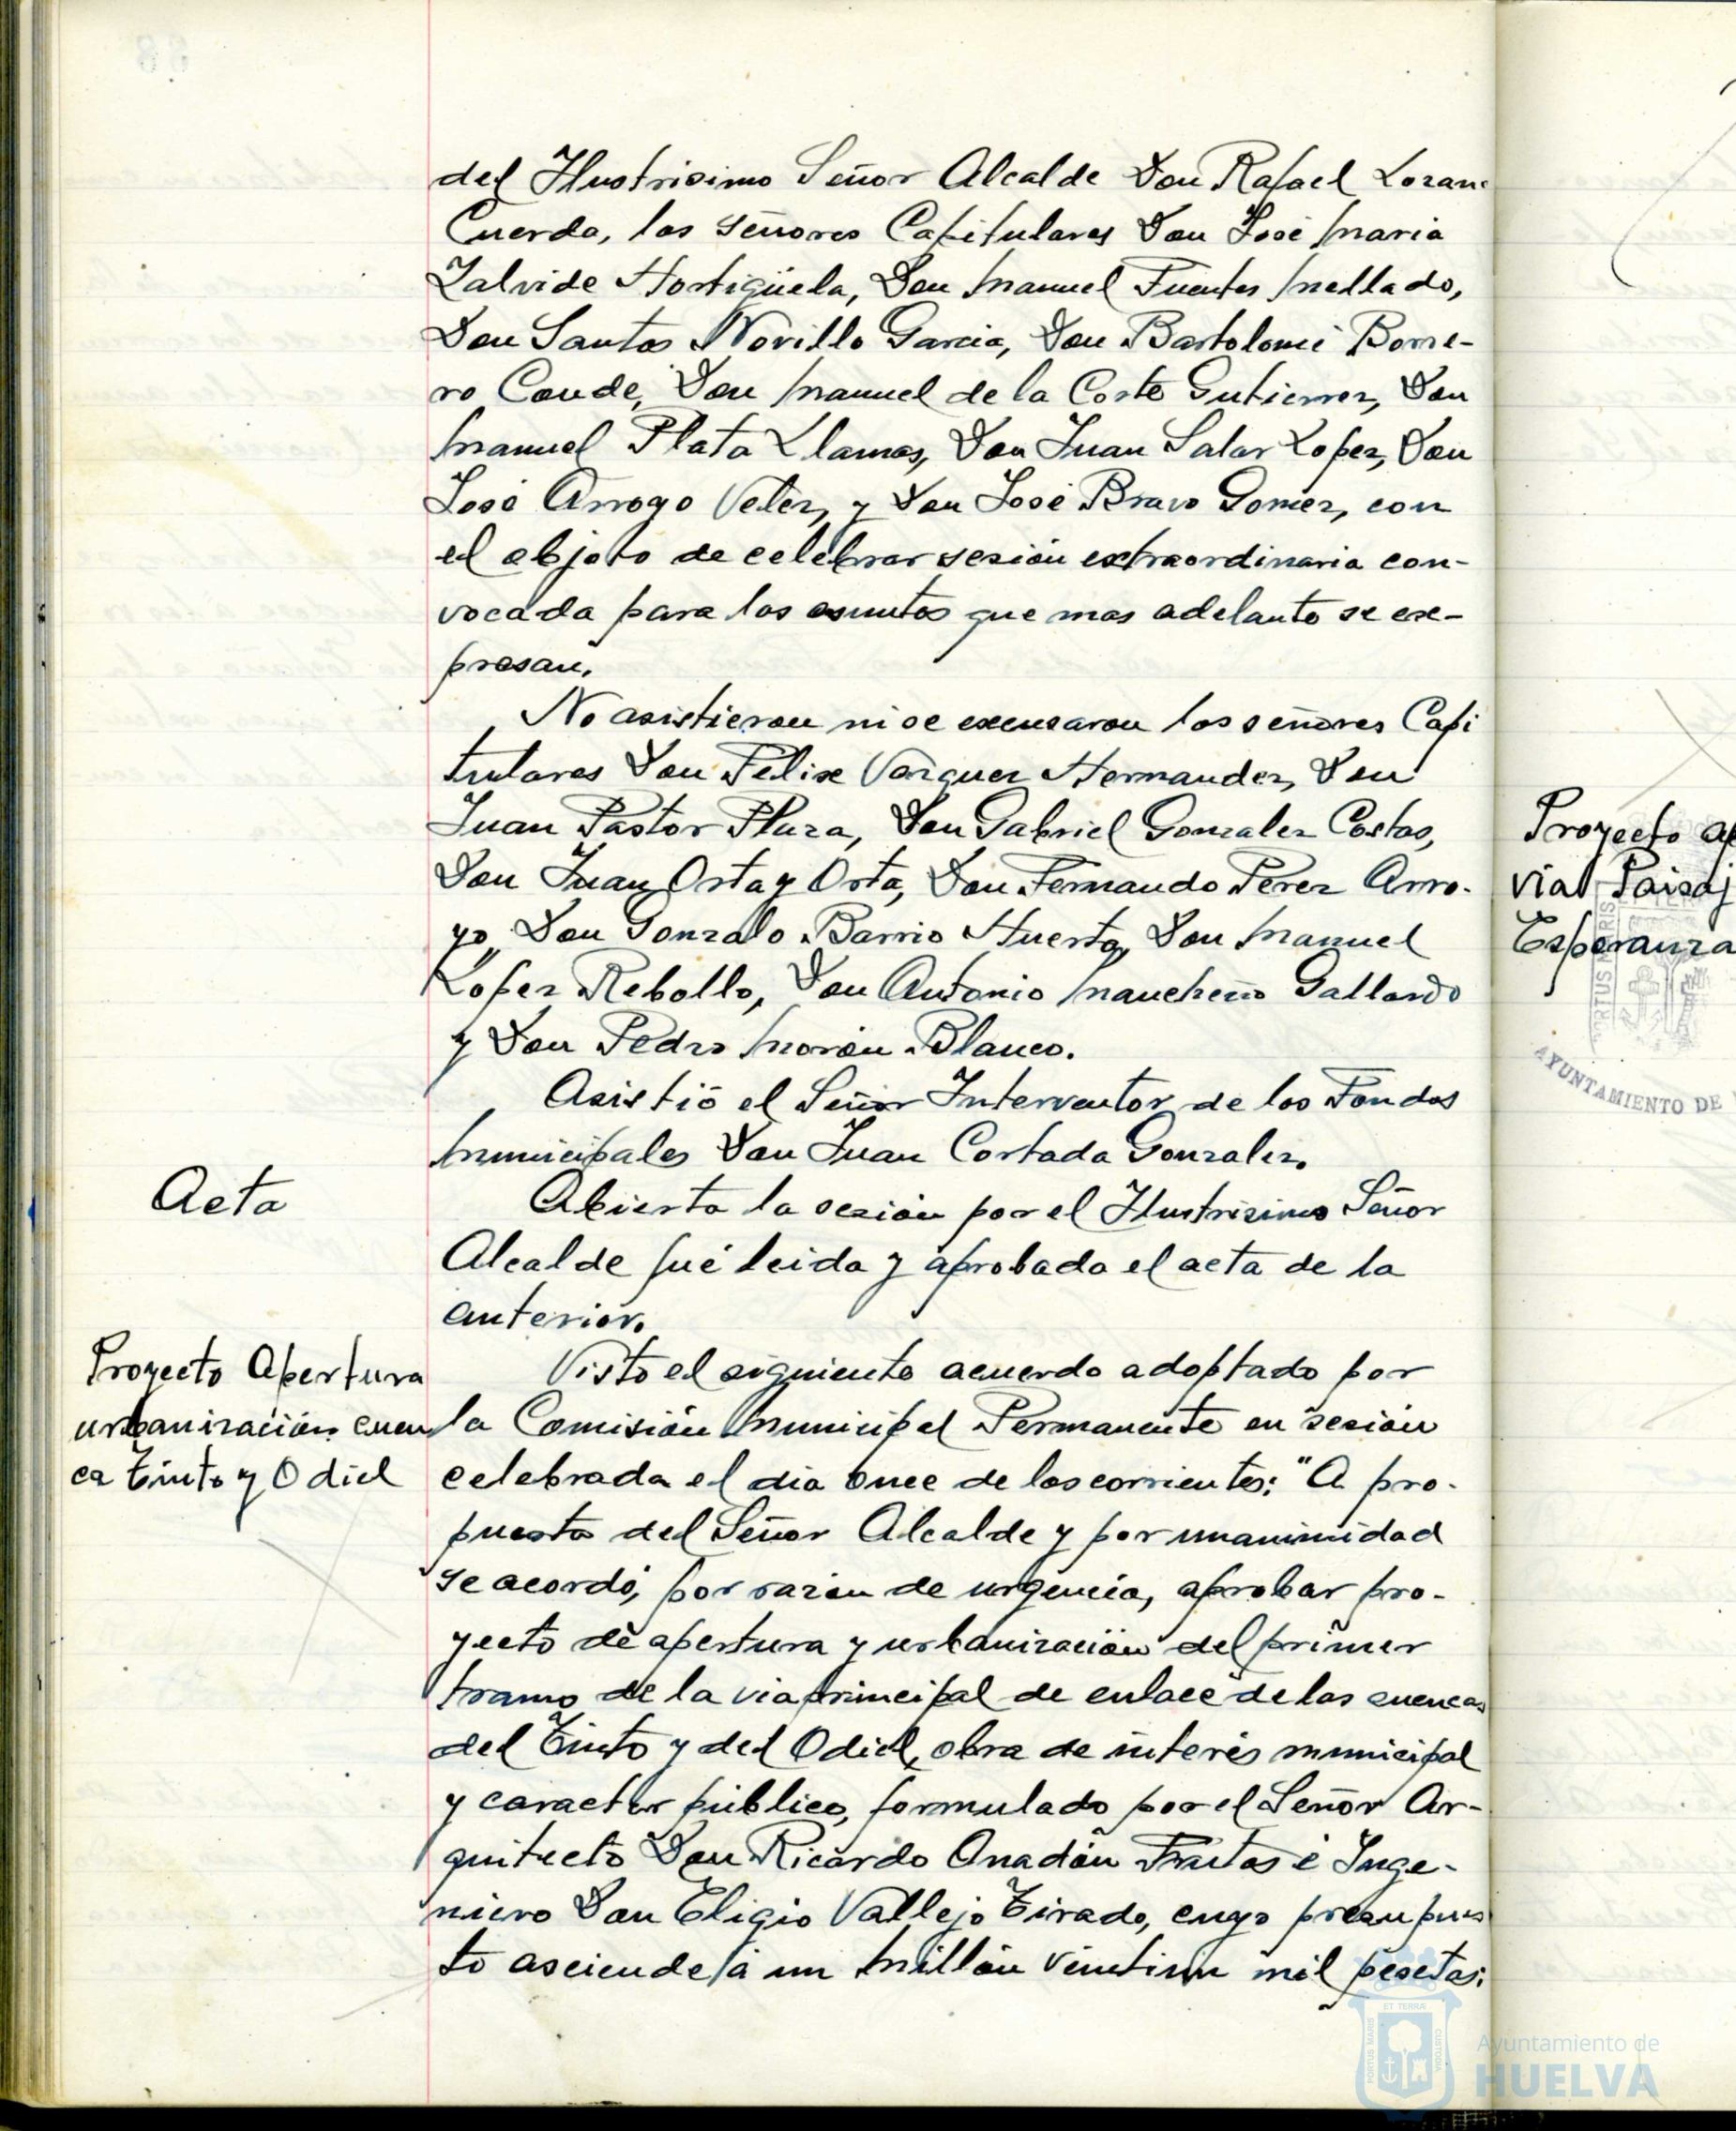 del Ilustrisimo Señor Alcalde Don Rafael Lozano
Cuerda, los señores Capitulares Don José Maria
Zalvide Hortigüela, Don Manuel Fuentes Mellado,
Don Santos Novillo Garcia, Don Bartolomé Borre-
ro Conde, Don Manuel de la Corte Gutierrez, Don
Manuel Plata Llamas, Don Juan Salas Lopez, Don
José Arroyo Velez, y Don José Bravo Gomez, con
el objeto de celebrar sesión extraordinaria con-
vocada para los asuntos que mas adelante se ex-
presan.
No asistieron ni se excusaron los señores Capi
tulares Don Felix Vazquez Hernandez, Don
Juan Pastor Plaza, Don Gabriel Gonzalez Costas,
Don Juan Orta y Orta, Don Fernando Perez Arro-
yo, Don Gonzalo Barrio Huerta, Don Manuel
Lopez Rebollo, Don Antonio Mancheño Gallardo
y Don Pedro Morón Blanco.
Asistió el Señor Interventor de los Fondos
Municipales Don Juan Cortada Gonzalez.
Acta
Abierta la sesión por el Ilustrisimo Señor
Alcalde fué leida y aprobada el acta de la
anterior.
Proyecto Apertura
urbanización cuen
ca Tinto y Odiel
Visto el siguiente acuerdo adoptado por
la Comisión Municipal Permanente en sesión
celebrada el dia once de los corrientes: "A pro-
puesta del Señor Alcalde y por unanimidad
se acordó, por razón de urgencia, aprobar pro-
yecto de apertura y urbanización del primer
tramo de la via principal de enlace de las cuencas
del Tinto y del Odiel, obra de interés municipal
y caracter público, formulado por el Señor Ar-
quitecto Don Ricardo Anadón Frutos é Inge-
niero Don Eligio Vallejo Tirado, cuyo presupues
to asciende á un Millón veintiun mil pesetas;
Proyecto ap
vial Paisaj
Esperanza
AYUNTAMIENTO DE
PORTUS MARIS
ET TERRÆ
CUSTODIA
Ayuntamiento de
HUELVA